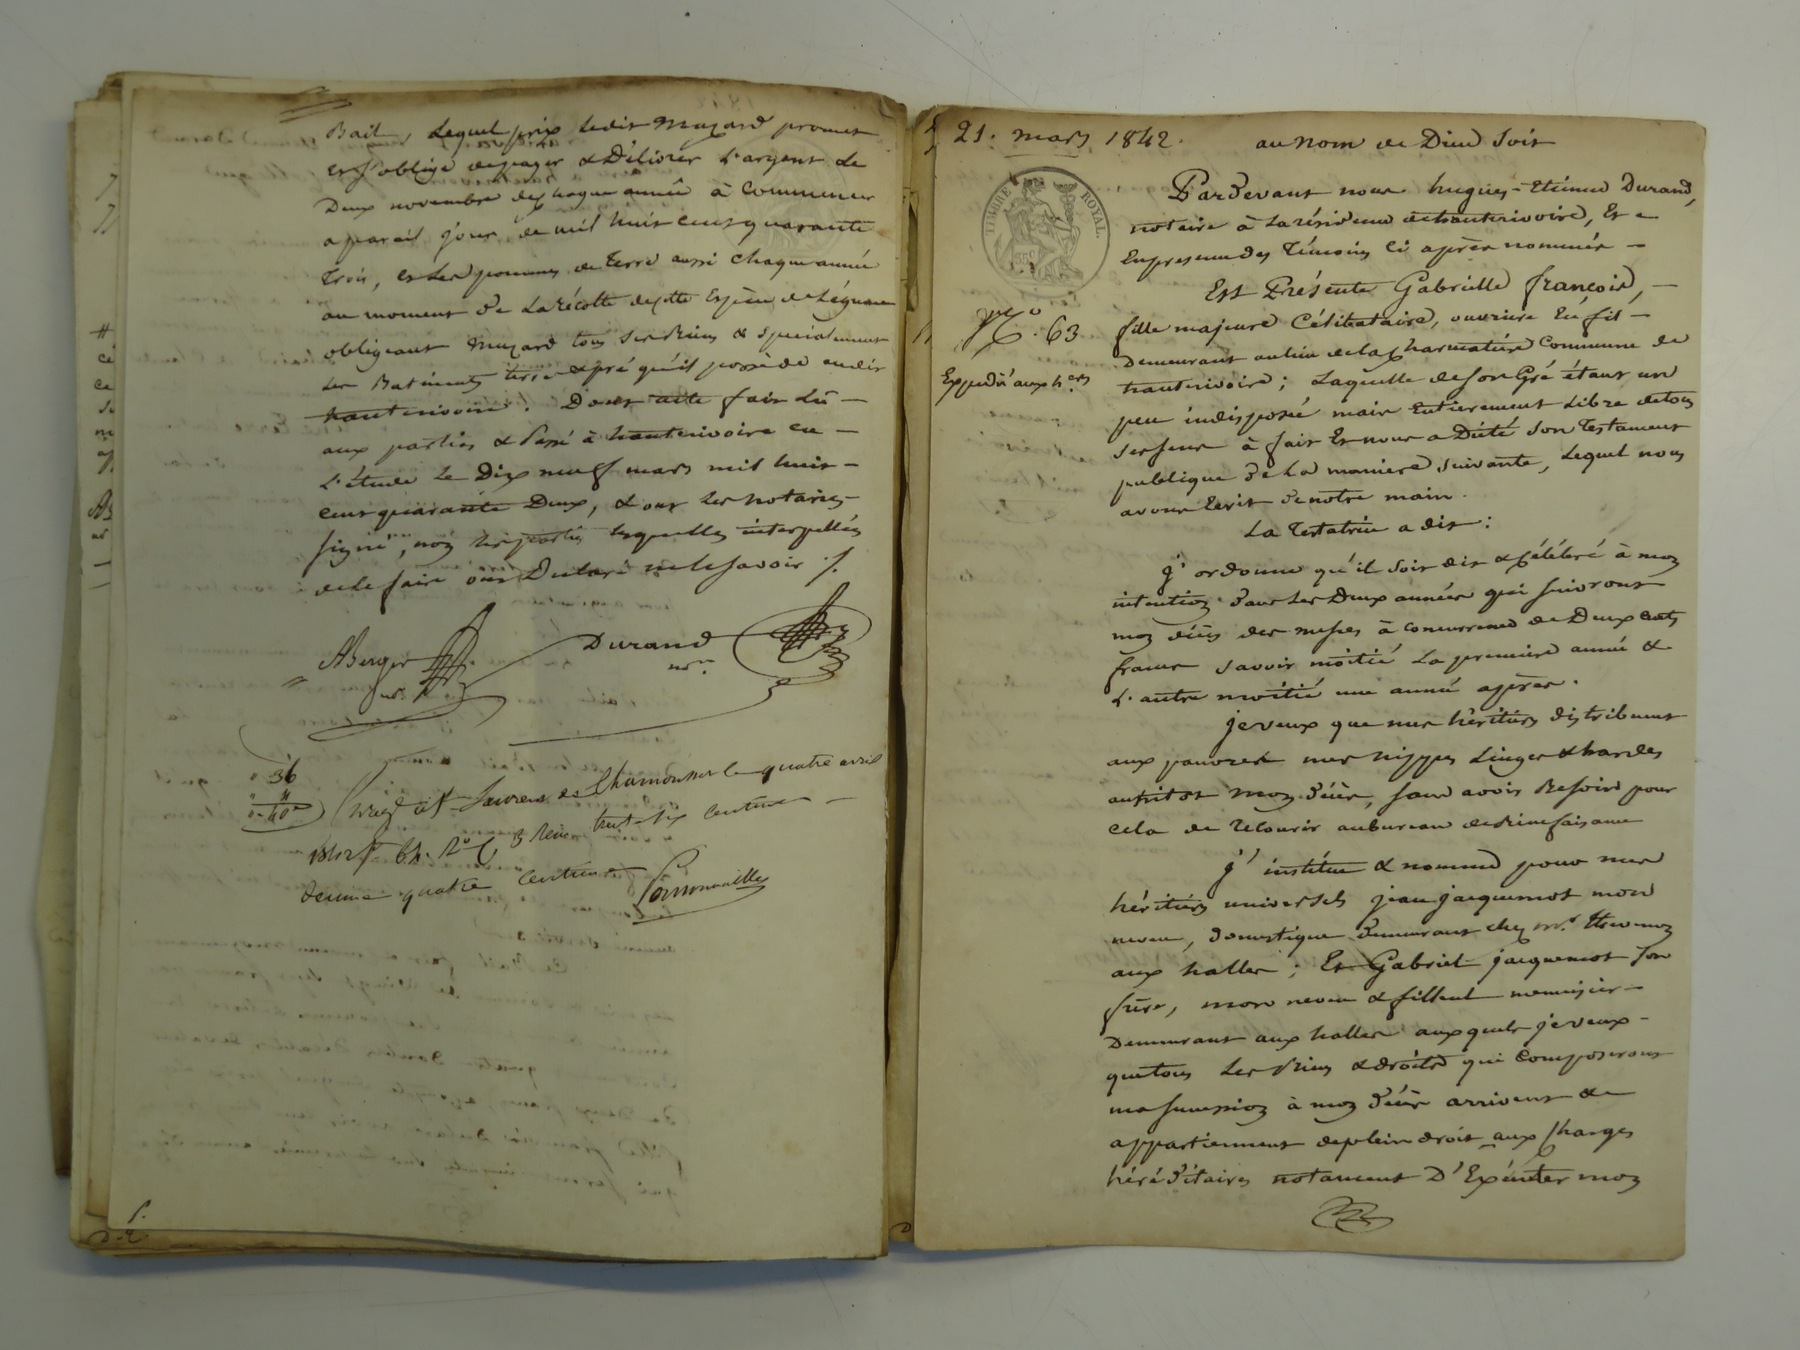 Bail, Lequel prix ledit Mazard promet
et s'oblige de payer & Délivrer L'argent Le
Deux novembre de chaque année à Commencer
a pareil jour de mil huit cent quarante
trois, et Les pommes de terre aussi chaque année
au moment de La récolte de cette Espèce de Légume
obligeant Mazard tous ses Biens & spécialement
Les Batiments terre & pré qu'il possède audit
hauterivoire. Dont acte fait Lû —
aux parties & Passé à hauterivoire en —
L'étude Le Dix neuf mars mil huit —
cent quarante Deux, & ont Les notaires
signé, non les parties lesquelles interpellées
de le faire ont Declaré ne le savoir ./.
ABerger
nre.
Durand
nore.
" 36
" 4
0-40
Enregé à St Laurent de Chamousset le quatre avril
1842 fo 64. Ro C. 3 Reçu trente-six centimes —
décime quatre centimes
21. mars 1842.
au nom de Dieu soit
TIMBRE ROYAL.
35c
No. 63
Expedié aux hers
Pardevant nous hugues-Etienne Durand,
notaire à La résidence de hauterivoire, Et —
En presence des Témoins ci après nommés —
Est Présente Gabrielle françois, —
fille majeure Célibataire, ouvrière En fil —
Demeurant au lieu de la Charmatière Commune de
hauterivoire ; Laquelle de son Gré étant un
peu indisposée mais Entierement Libre de tous
ses sens à fait Et nous a Dicté son Testament
publique de La maniere suivante, Lequel nous
avons Ecrit de notre main.
La Testatrice a dit :
J'ordonne qu'il soit dit & célébré à mon
intention dans Les Deux années qui suivront
mon décès des messes à concurrence de Deux cents
francs savoir moitié La première année &
L'autre moitié une année après.
je veux que mes héritiers distribuent
aux pauvres mes nippes Linges & hardes
aussitot mon décès, sans avoir Besoin pour
cela de recourir au bureau de Bienfaisance
J'institue & nomme pour mes
héritiers universels jean jacquemot mon
neveu, domestique demeurant chez mr. Thevenon
aux halles ; Et Gabriel jacquemot son
frère, mon neveu & filleul menuisier —
Demeurant aux halles auxquels je veux —
que tous Les Biens & droits qui Composeront
ma succession à mon décès arrivent &
appartiennent de plein droit aux Charges
héréditaires notament D'Exécuter mon